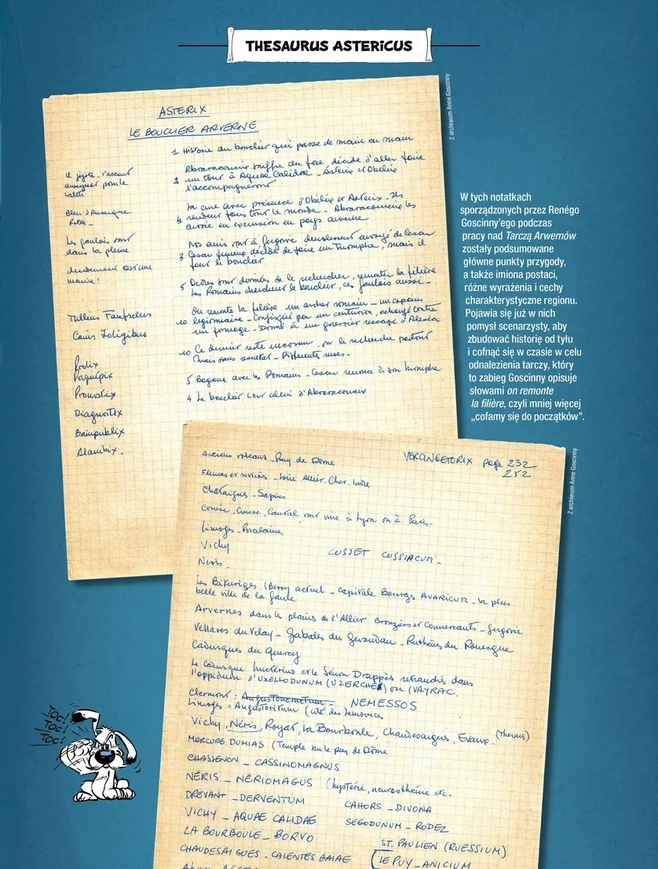 THESAURUS ASTERICUS
Z archiwum Anne Goscinny
ASTERIX
LE BOUCLIER ARVERNE
1 Histoire du bouclier qui passe de main en main
Abraracourcix souffre du foie, décide d'aller faire
2 un tour à Aquae Calidae - Astérix et Obélix
l'accompagneront
La cure avec présence d'Obélix et Astérix. Ils
rendent fous tout le monde. Abraracourcix les
envoie en excursion en pays arverne
Nos amis vont à Gergovie envoyé de César
3 César décide de faire un triomphe, mais il
faut le bouclier
5 Ordres sont donnés de le rechercher, remonter la filière
Les Romains cherchent le bouclier, les gaulois aussi -
On remonte la filière un archer romain -
10 légionnaire - Confisqué par un centurion, échangé contre
Donné à un guerrier rescapé d'Alésia
10 Ce dernier reste inconnu, on le recherche partout
Mais sans succès - Différentes ruses.
5 Bagarre avec les Romains - César renonce à son triomphe
4 Le bouclier celui d'Abraracourcix
l'accent
Bleu d'Auvergne
Les gaulois sont
dans la pleine
Tullius Fanfrelus
Caius Joligibus
Frolix
Pronostix
Diagnostix
Alambix -
W tych notatkach
sporządzonych przez Renégo
Goscinny'ego podczas
pracy nad Tarczą Arwernów
zostały podsumowane
główne punkty przygody,
a także imiona postaci,
różne wyrażenia i cechy
charakterystyczne regionu.
Pojawia się już w nich
pomysł scenarzysty, aby
zbudować historię od tyłu
i cofnąć się w czasie w celu
odnalezienia tarczy, który
to zabieg Goscinny opisuje
słowami on remonte
la filière, czyli mniej więcej
„cofamy się do początków".
Z archiwum Anne Goscinny
Anciens volcans - Puy de Dôme
VERCINGETORIX page 232
252
Fleuves et rivières - Loire Allier. Cher. Indre
Châtaignes - Sapins
Corrèze, Creuse, Cantal vont vite à Lyon ou à Paris.
Limoges - Porcelaine
Vichy
CUSSET CUSSIACUM -
Néris -
Les Bituriges (Berry actuel - Capitale Bourges AVARICUM - la plus
belle ville de la Gaule
Arvernes dans la plaine de l'Allier Bronziers et Commerçants - Gergovie
Vellaves du Velay - Gabales du Gévaudan - Ruthènes du Rouergue
Cadurques du Quercy
Le Cadurque Luctérius et le Sénon Drappès retranchés dans
l'oppidum d'UXELLODUNUM (UZERCHE) ou (VAYRAC.
Clermont : Augustonemetum - NEMESSOS
Limoges - Augustoritum (cité des Lemovices
Vichy, Néris, Royat, La Bourboule, Chaudesaigues, Evaux. (Thermes)
MERCURE DUMIAS (Temple sur le puy de Dôme
CHASSENON - CASSINOMAGNUS
NÉRIS - NÉRIOMAGUS (hystérie, neurasthénie etc.
DREVANT - DERVENTUM
CAHORS - DIVONA
VICHY - AQUAE CALIDAE
SEGODUNUM - RODEZ
LA BOURBOULE - BORVO
ST. PAULIEN (RUESSIUM)
CHAUDESAIGUES - CALENTES BAIAE
LE PUY - ANICIUM
TOC!
TOC!
TOC!